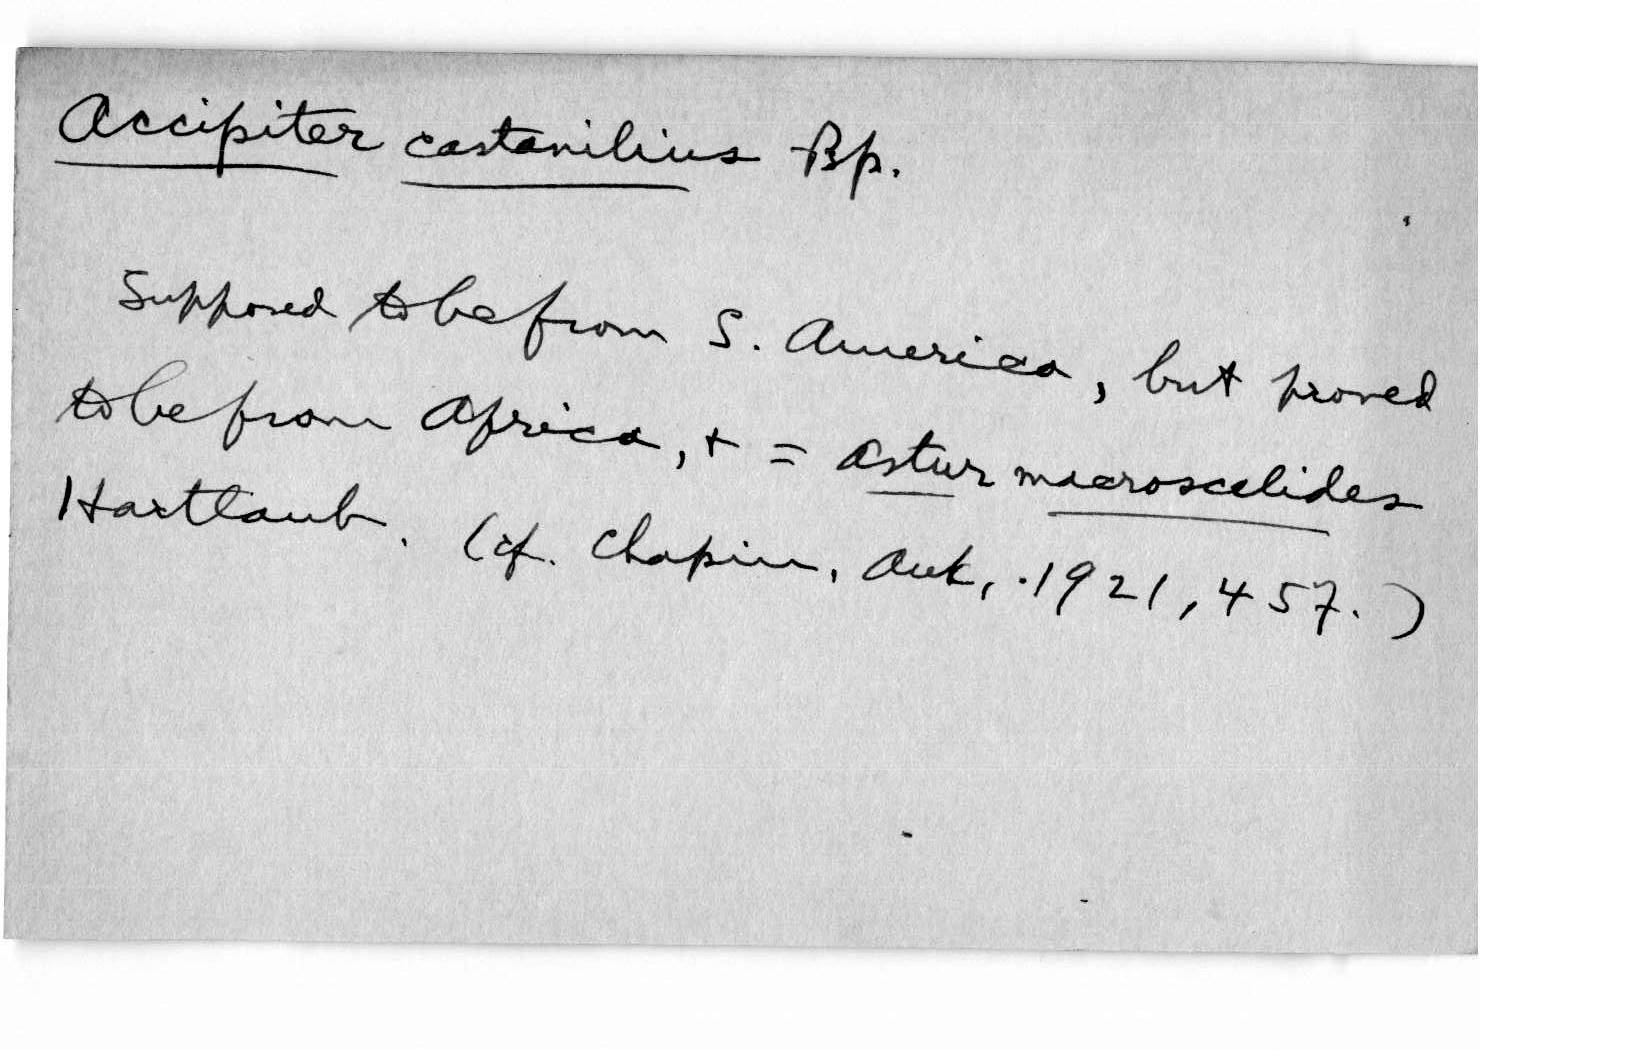 Accipiter castanilius Bp.
Supposed to be from S. America, but proved
to be from Africa, + = Astur macroscelides
Hartlaub. (cf. Chapin, Auk, 1921, 457.)